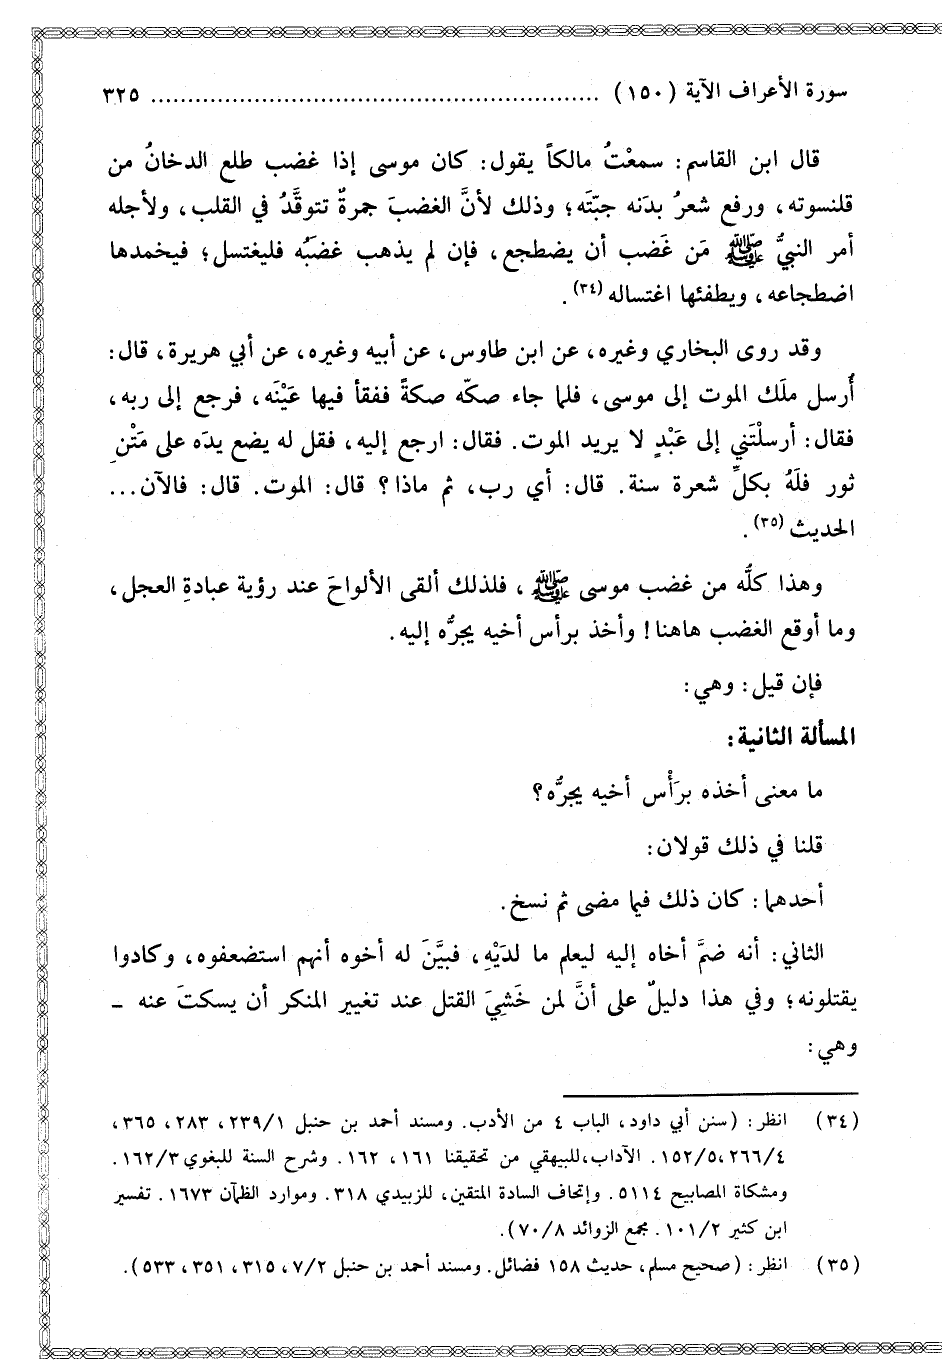 سورة الأعراف الآية (١٥٠) ............................................................ ٣٢٥
قال ابن القاسم: سمعْتُ مالكاً يقول: كان موسى إذا غضب طلع الدخانُ من
قلنسوته، ورفع شعرُ بدَنه جبّتَه؛ وذلك لأنَّ الغضبَ جمرةٌ تتوقَّدُ في القلب، ولأجله
أمر النبيُّ ﷺ مَن غَضب أن يضطجع، فإن لم يذهب غضبُه فليغتسل؛ فيخمدها
اضطجاعه، ويطفئها اغتساله (٣٤).
وقد روى البخاري وغيره، عن ابن طاوس، عن أبيه وغيره، عن أبي هريرة، قال:
أُرسل ملَك الموت إلى موسى، فلما جاء صكّه صكةً ففقأ فيها عَيْنَه، فرجع إلى ربه،
فقال: أرسلْتَني إلى عَبْدٍ لا يريد الموت. فقال: ارجع إليه، فقل له يضع يدَه على مَتْنِ
ثور فلَهُ بكلِّ شعرة سنة. قال: أي رب، ثم ماذا؟ قال: الموت. قال: فالآن...
الحديث (٣٥).
وهذا كلُّه من غضب موسى ﷺ، فلذلك ألقى الألواحَ عند رؤية عبادةِ العجل،
وما أوقع الغضب هاهنا! وأخذ برأس أخيه يجرُّه إليه.
فإن قيل: وهي:
المسألة الثانية:
ما معنى أخذه برَأْس أخيه يجرُّه؟
قلنا في ذلك قولان:
أحدهما: كان ذلك فيما مضى ثم نسخ.
الثاني: أنه ضمَّ أخاه إليه ليعلم ما لدَيْهِ، فبيَّنَ له أخوه أنهم استضعفوه، وكادوا
يقتلونه؛ وفي هذا دليلٌ على أنَّ لمن خَشِيَ القتل عند تغيير المنكر أن يسكتَ عنه -
وهي:
(٣٤) انظر: (سنن أبي داود، الباب ٤ من الأدب. ومسند أحمد بن حنبل ٢٣٩/١، ٢٨٣، ٣٦٥،
٢٦٦/٤،١٥٢/٥. الآداب،للبيهقي من تحقيقنا ١٦١، ١٦٢. وشرح السنة للبغوي ١٦٢/٣.
ومشكاة المصابيح ٥١١٤. وإتحاف السادة المتقين، للزبيدي ٣١٨. وموارد الظمآن ١٦٧٣. تفسير
ابن كثير ١٠١/٢. مجمع الزوائد ٧٠/٨).
(٣٥) انظر: (صحيح مسلم، حديث ١٥٨ فضائل. ومسند أحمد بن حنبل ٧/٢، ٣١٥، ٣٥١، ٥٣٣).